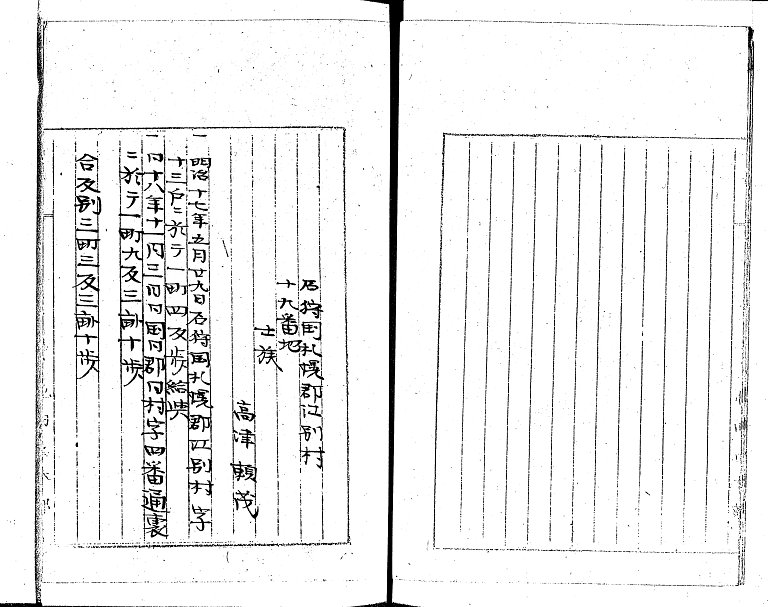 石狩国札幌郡江別村
十九番地
士族
高津頼茂
一 明治十七年五月廿九日石狩国札幌郡江別村字
十三戸ニ於テ一町四反歩給与
一 同十八年十一月三日同国同郡同村字四番通裏
ニ於テ一町九反三畝十歩
合反別三町三反三畝十歩